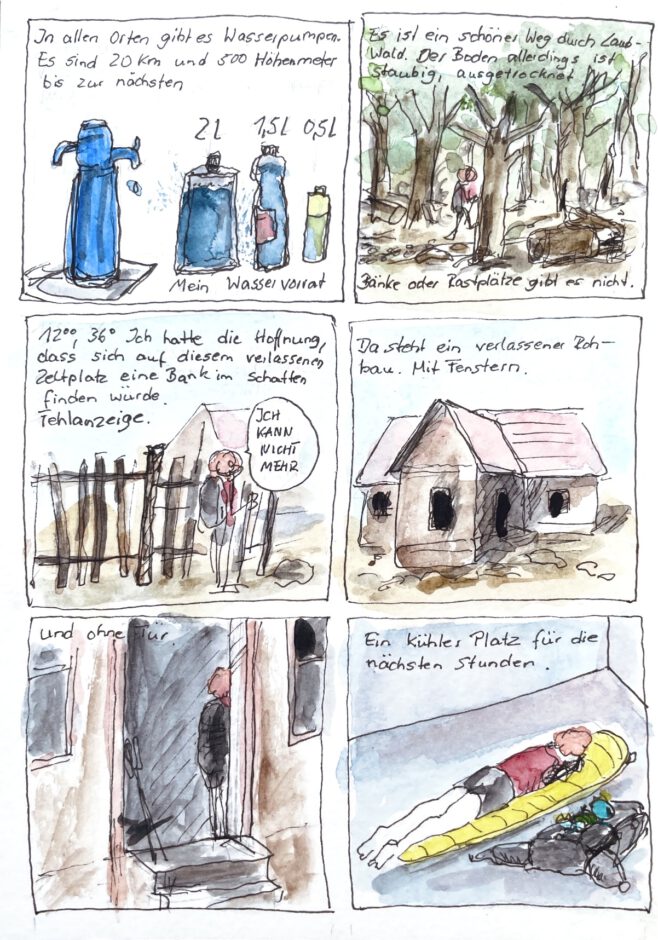 In allen Orten gibt es Wasserpumpen.
Es sind 20 Km und 500 Höhenmeter
bis zur nächsten
2L 1,5L 0,5L
Mein Wasservorrat
Es ist ein schöner Weg durch Laub-
Wald. Der Boden allerdings ist
staubig, ausgetrocknet
Bänke oder Rastplätze gibt es nicht.
12⁰⁰, 36° Ich hatte die Hoffnung,
dass sich auf diesem verlassenen
Zeltplatz eine Bank im Schatten
finden würde.
Fehlanzeige.
ICH
KANN
NICHT
MEHR
Da steht ein verlassener Roh-
bau. Mit Fenstern.
und ohne Tür.
Ein kühler Platz für die
nächsten Stunden.